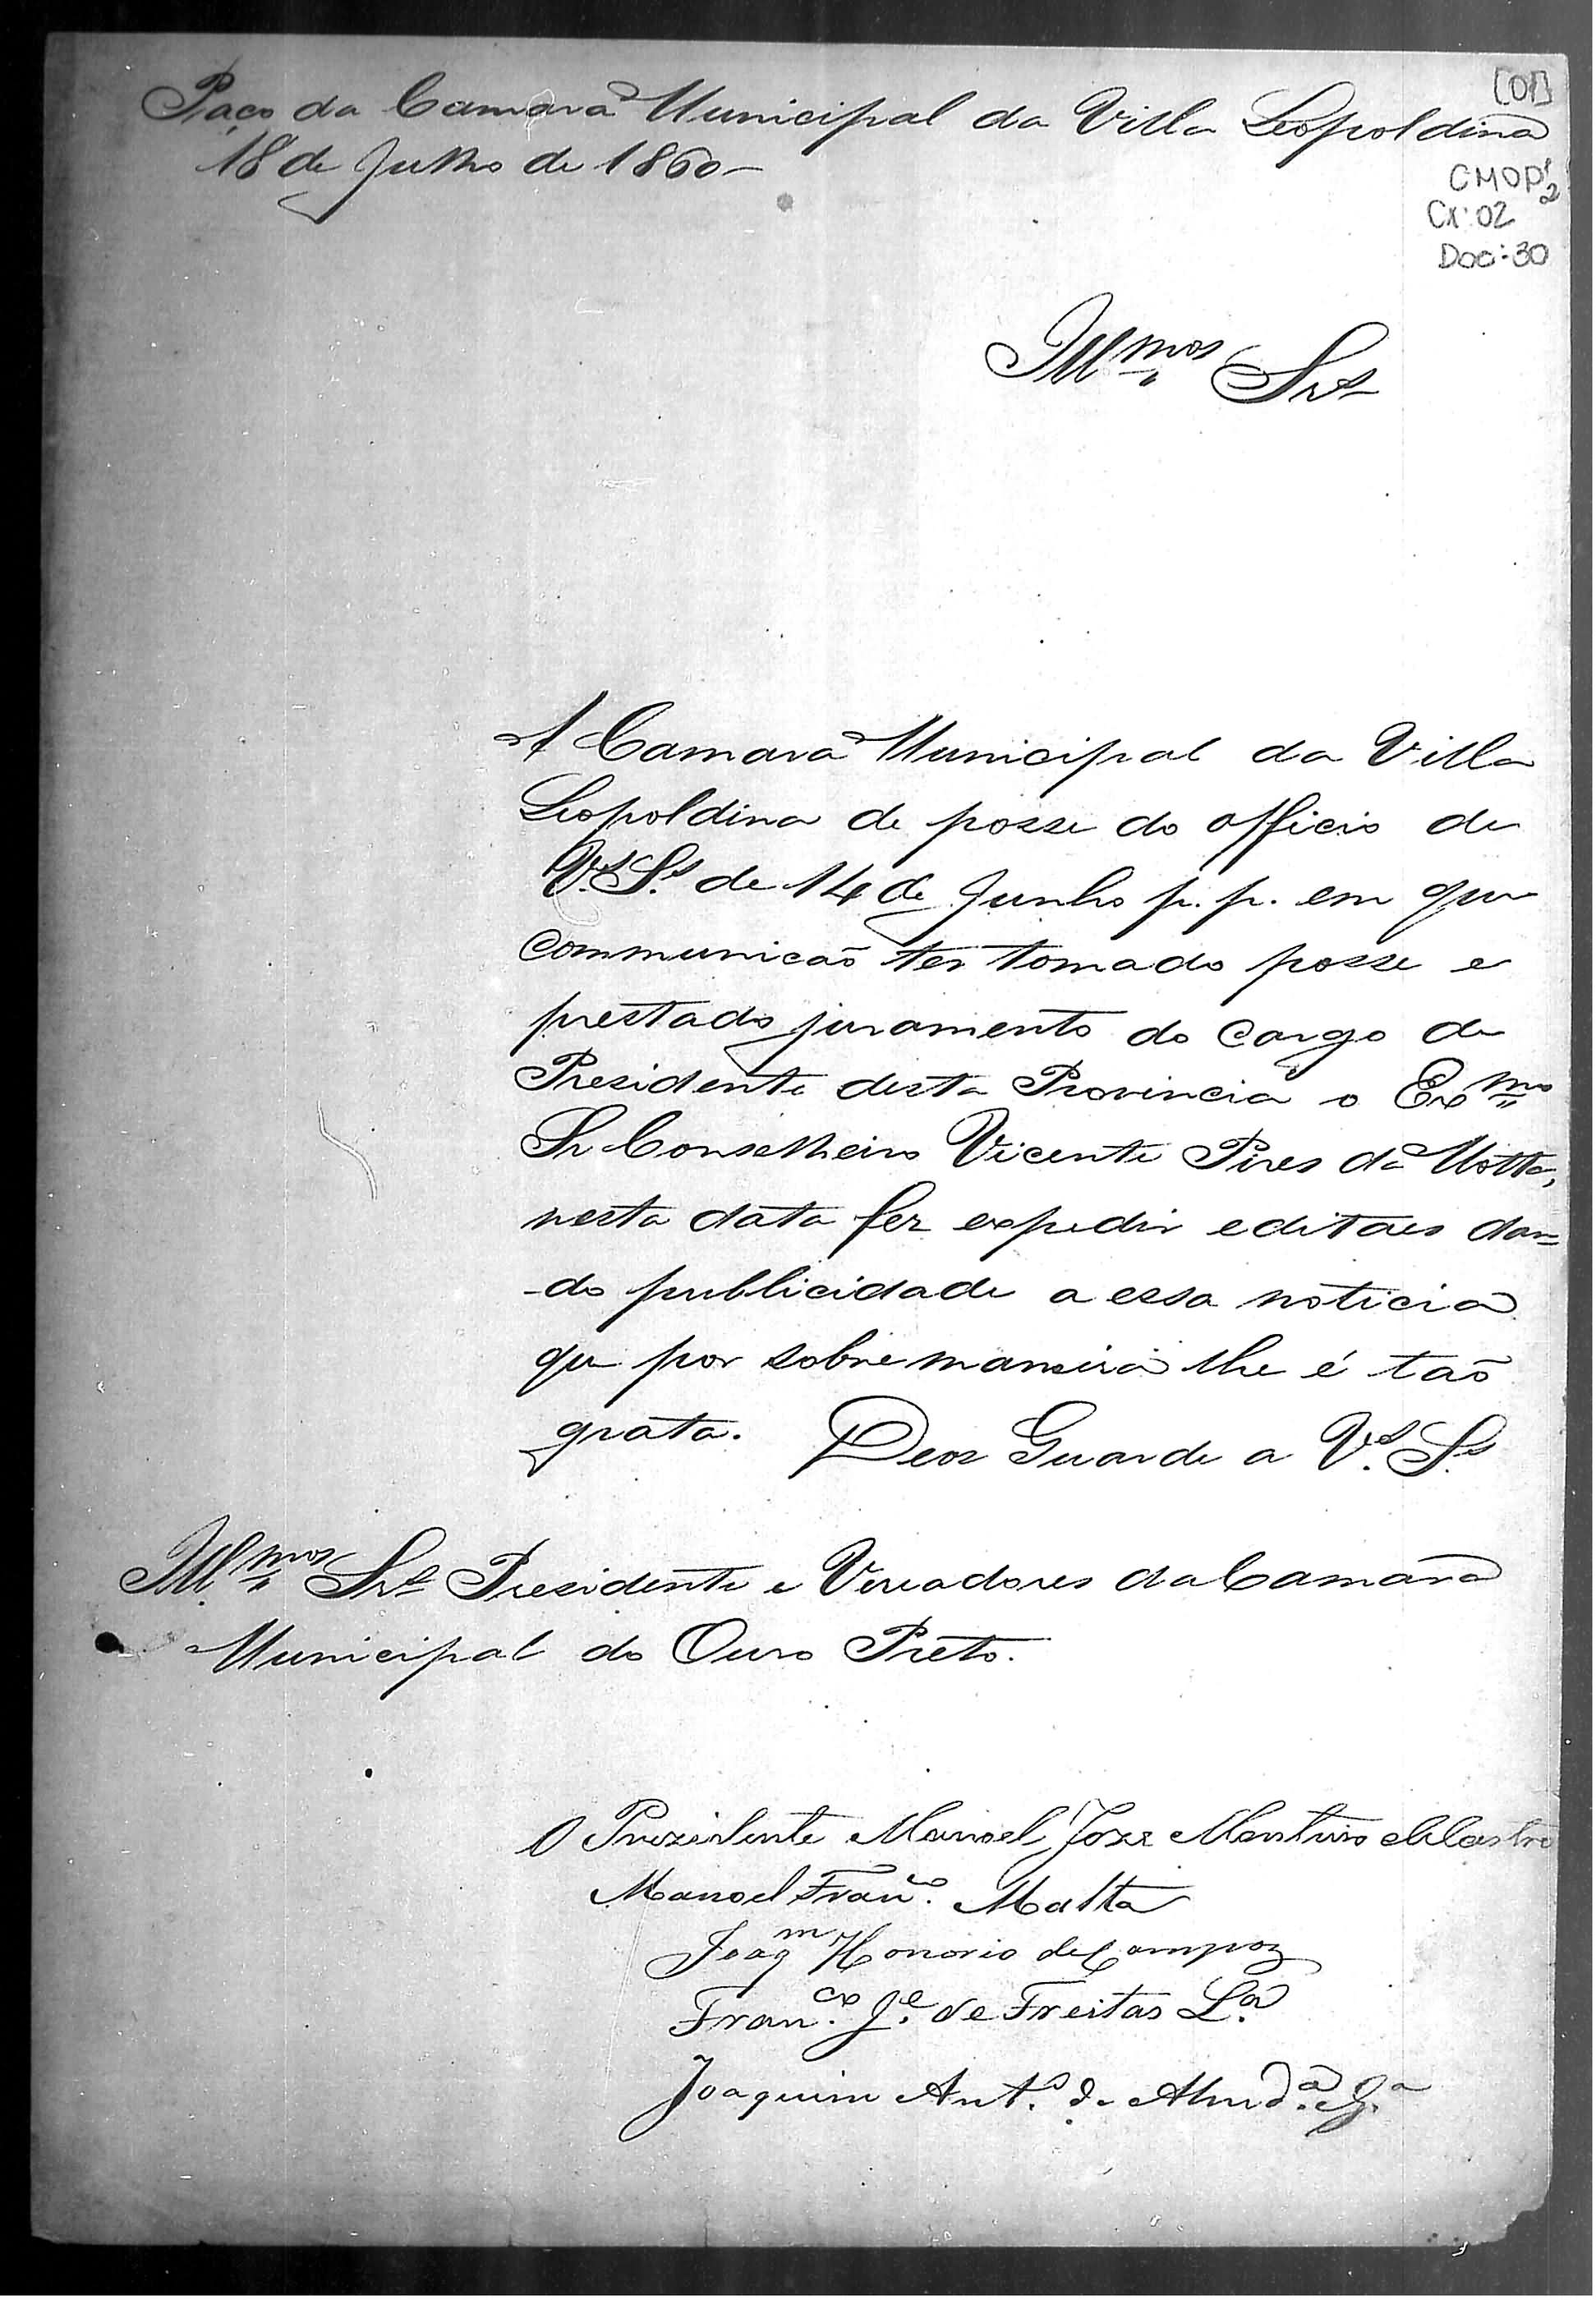 [01]
Paço da Camara Municipal da Villa Leopoldina
18 de Julho de 1860
CMOP 1/2
Cx: 02
Doc: 30
Ill.mos Srs
A Camara Municipal da Villa
Leopoldina de posse do officio de
V.s S.s de 14 de Junho p. p. em que
communicaõ ter tomado posse e
prestado juramento do cargo de
Presidente desta Provincia o Exmo
Sr Conselheiro Vicente Pires da Motta,
nesta data fez expedir editaes dan=
-do publicidade a essa noticia
que por sobremaneira lhe é taõ
grata. Deos Guarde a V.s S.s
Ill.mos Srs Presidente e Vereadores da Camara
Municipal do Ouro Preto.
O Prezidente Manoel Joze Monteiro de Castro
Manoel Fran.co Malta
Joaqm Honorio de Campoz
Fran.co J.e de Freitas L.a
Joaquim Ant.o de Almd.a G.a